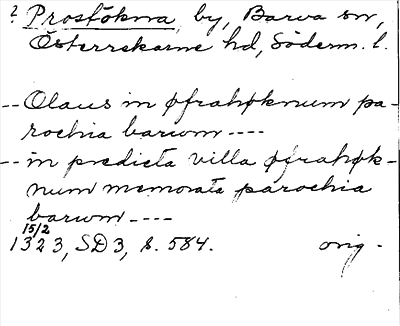 ? Prostökna, by, Barva sn,
Österrekarne hd, Söderm. l.
-- Olaus in øfrahøknum pa-
rochia barwm ----
-- in predicta villa øfrahøk-
num memorata parochia
barwm ----
15/2
1323, SD3, s. 584. orig.